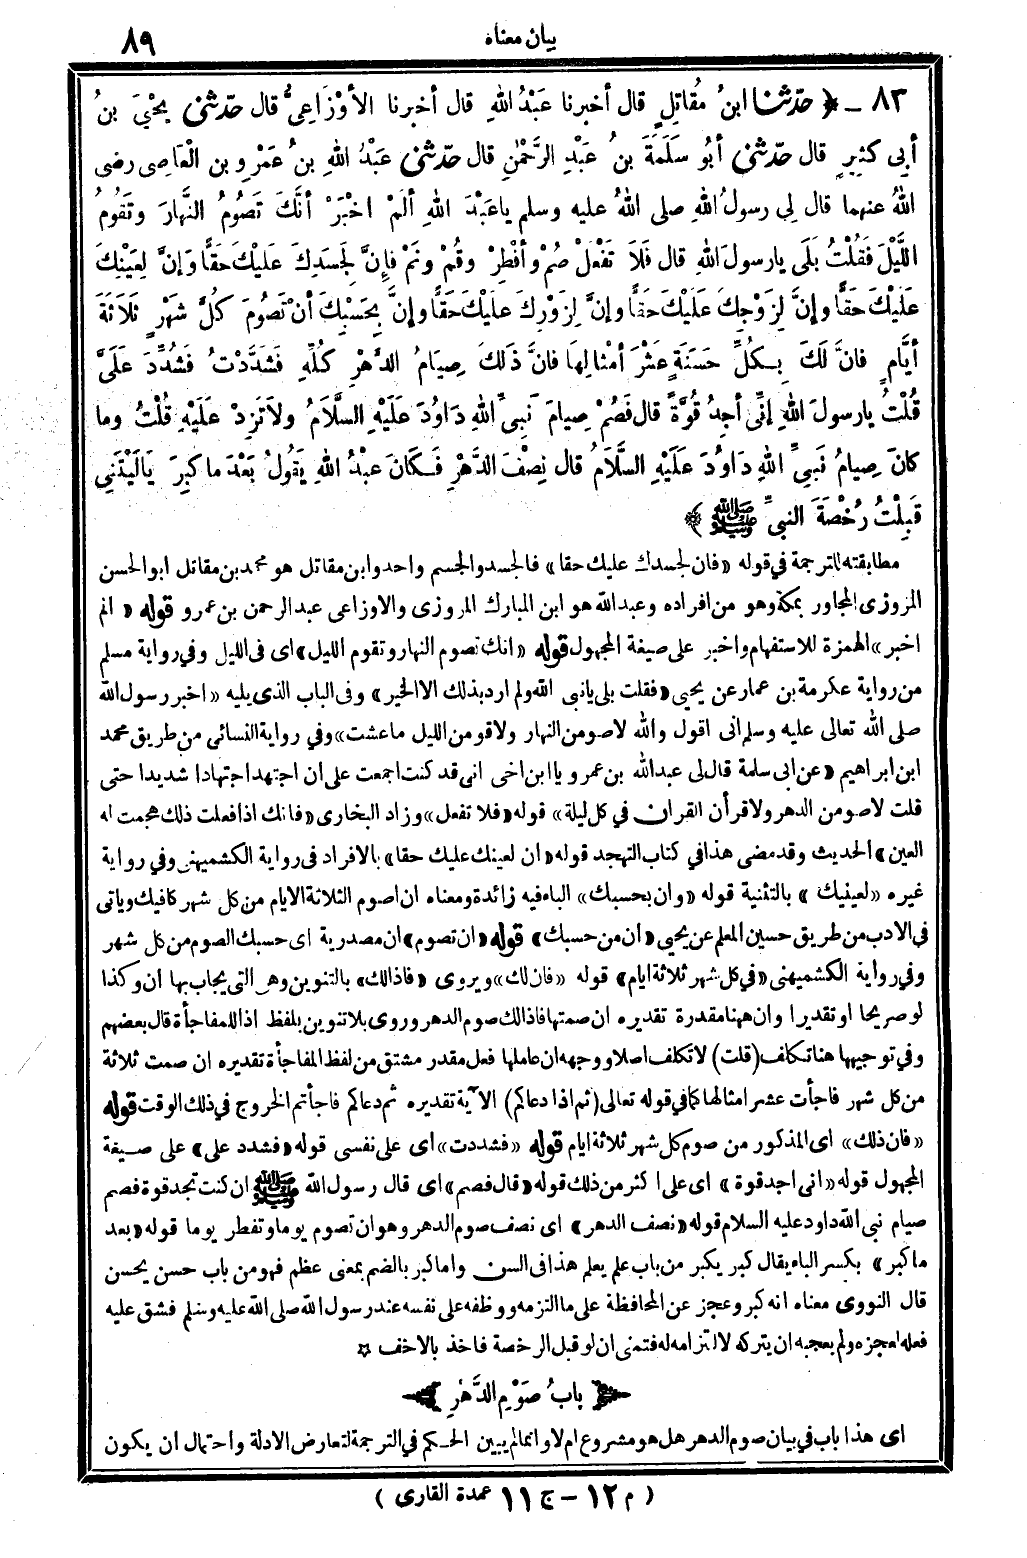 بيان معناه ٨٩
٨٣ - ﴿ حدّثنا ابنُ مُقاتِلٍ قال أخبرنا عَبْدُ اللهِ قال أخبرنا الأوْزَاعِيُّ قال حدّثنى يَحْيَ بنُ
أبِي كَثِيرٍ قال حدّثنى أبُو سَلَمَةَ بنُ عَبْدِ الرَّحْمٰنِ قال حدّثنى عَبْدُ اللهِ بنُ عَمْرِو بنِ الْعَاصِى رضى
اللهُ عنهما قال لِي رسولُ اللهِ صلى اللهُ عليه وسلم ياعَبْدَ اللهِ ألَمْ اخْبَرْ أنَّكَ تَصُومُ النَّهارَ وتَقُومُ
اللَّيْلَ فَقُلْتُ بَلَى يارسولَ اللهِ قال فَلاَ تَفْعَلْ صُمْ وأفْطِرْ وقُمْ ونَمْ فإنَّ لِجَسَدِكَ عَلَيْكَ حَقًّا وَإنَّ لِعَيْنِكَ
عَلَيْكَ حَقًّا وإنَّ لِزَوْجِكَ عَلَيْكَ حَقًّا وإنَّ لِزَوْرِكَ عَلَيْكَ حَقًّا وإنَّ بِحَسْبِكَ أنْ تَصُومَ كُلَّ شَهْرٍ ثَلاَثَةَ
أيَّامٍ فانَّ لَكَ بِكُلِّ حَسَنَةٍ عَشْرَ أمْثالِها فانَّ ذَلكَ صِيامُ الدَّهْرِ كُلِّهِ فَشَدَّدْتُ فَشُدِّدَ عَلَىَّ
قُلْتُ يارسولَ اللهِ إنِّي أجِدُ قُوَّةً قال فَصُمْ صِيامَ نَبِىِّ اللهِ دَاوُدَ عَلَيْهِ السَّلاَمُ ولاَتَزِدْ عَلَيْهِ قُلْتُ وما
كانَ صِيامُ نَبِىِّ اللهِ دَاوُدَ عَلَيْهِ السَّلاَمُ قال نِصْفَ الدَّهْرِ فَكَانَ عبْدُ اللهِ يَقُولُ بَعْدَ ماكَبِرَ يَالَيْتَنِي
قَبِلْتُ رُخْصَةَ النبىِّ ﷺ ﴾
مطابقته للترجمة في قوله «فان لجسدك عليك حقا» فالجسد والجسم واحد وابن مقاتل هو محمد بن مقاتل ابو الحسن
المروزى المجاور بمكة وهو من افراده وعبد الله هو ابن المبارك المروزى والاوزاعى عبد الرحمن بن عمرو قوله «الم
اخبر» الهمزة للاستفهام واخبر على صيغة المجهول قوله «انك تصوم النهار وتقوم الليل» اى فى الليل وفى رواية مسلم
من رواية عكرمة بن عمار عن يحيى «فقلت بلى يانبى الله ولم ارد بذلك الا الخير» وفى الباب الذى يليه «اخبر رسول الله
صلى الله تعالى عليه وسلم انى اقول والله لاصومن النهار ولاقومن الليل ماعشت» وفي رواية النسائى من طريق محمد
ابن ابراهيم «عن ابى سلمة قال لى عبد الله بن عمرو يا ابن اخى انى قد كنت اجمعت على ان اجتهد اجتهادا شديدا حتى
قلت لاصومن الدهر ولاقرأن القرآن في كل ليلة» قوله «فلا تفعل» وزاد البخارى «فانك اذا فعلت ذلك هجمت له
العين» الحديث وقد مضى هذا في كتاب التهجد قوله «ان لعينك عليك حقا» بالافراد فى رواية الكشميهنى وفي رواية
غيره «لعينيك» بالتثنية قوله «وان بحسبك» الباء فيه زائدة ومعناه ان اصوم الثلاثة الايام من كل شهر كافيك ويأتى
في الادب من طريق حسين المعلم عن يحيى «ان من حسبك» قوله «ان تصوم» ان مصدرية اى حسبك الصوم من كل شهر
وفي رواية الكشميهنى «في كل شهر ثلاثة ايام» قوله «فان لك» ويروى «فاذالك» بالتنوين وهى التى يجاب بها ان وكذا
لو صريحا او تقديرا وان ههنا مقدرة تقديره ان صمتها فاذا لك صوم الدهر وروى بلا تنوين بلفظ اذا للمفاجأة قال بعضهم
وفي توجيهها هنا تكلف (قلت) لا تكلف اصلا ووجهه ان عاملها فعل مقدر مشتق من لفظ المفاجأة تقديره ان صمت ثلاثة
من كل شهر فاجأت عشر امثالها كما في قوله تعالى (ثم اذا دعاكم) الآية تقديره ثم دعاكم فاجأتم الخروج في ذلك الوقت قوله
«فان ذلك» اى المذكور من صوم كل شهر ثلاثة ايام قوله «فشددت» اى على نفسى قوله «فشدد على» على صيغة
المجهول قوله «انى اجد قوة» اى على اكثر من ذلك قوله «قال فصم» اى قال رسول الله ﷺ ان كنت تجد قوة فصم
صيام نبى الله داود عليه السلام قوله «نصف الدهر» اى نصف صوم الدهر وهو ان تصوم يوما وتفطر يوما قوله «بعد
ماكبر» بكسر الباء يقال كبر يكبر من باب علم يعلم هذا فى السن واما كبر بالضم بمعنى عظم فهو من باب حسن يحسن
قال النووى معناه انه كبر وعجز عن المحافظة على ما التزمه ووظفه على نفسه عند رسول الله صلى الله عليه وسلم فشق عليه
فعله لعجزه ولم يعجبه ان يتركه لالتزامه له فتمنى ان لو قبل الرخصة فاخذ بالاخف
بابُ صَوْمِ الدَّهْرِ
اى هذا باب في بيان صوم الدهر هل هو مشروع ام لا وانما لم يبين الحكم في الترجمة لتعارض الادلة واحتمال ان يكون
(م ١٢ - ج ١١ عمدة القارى)